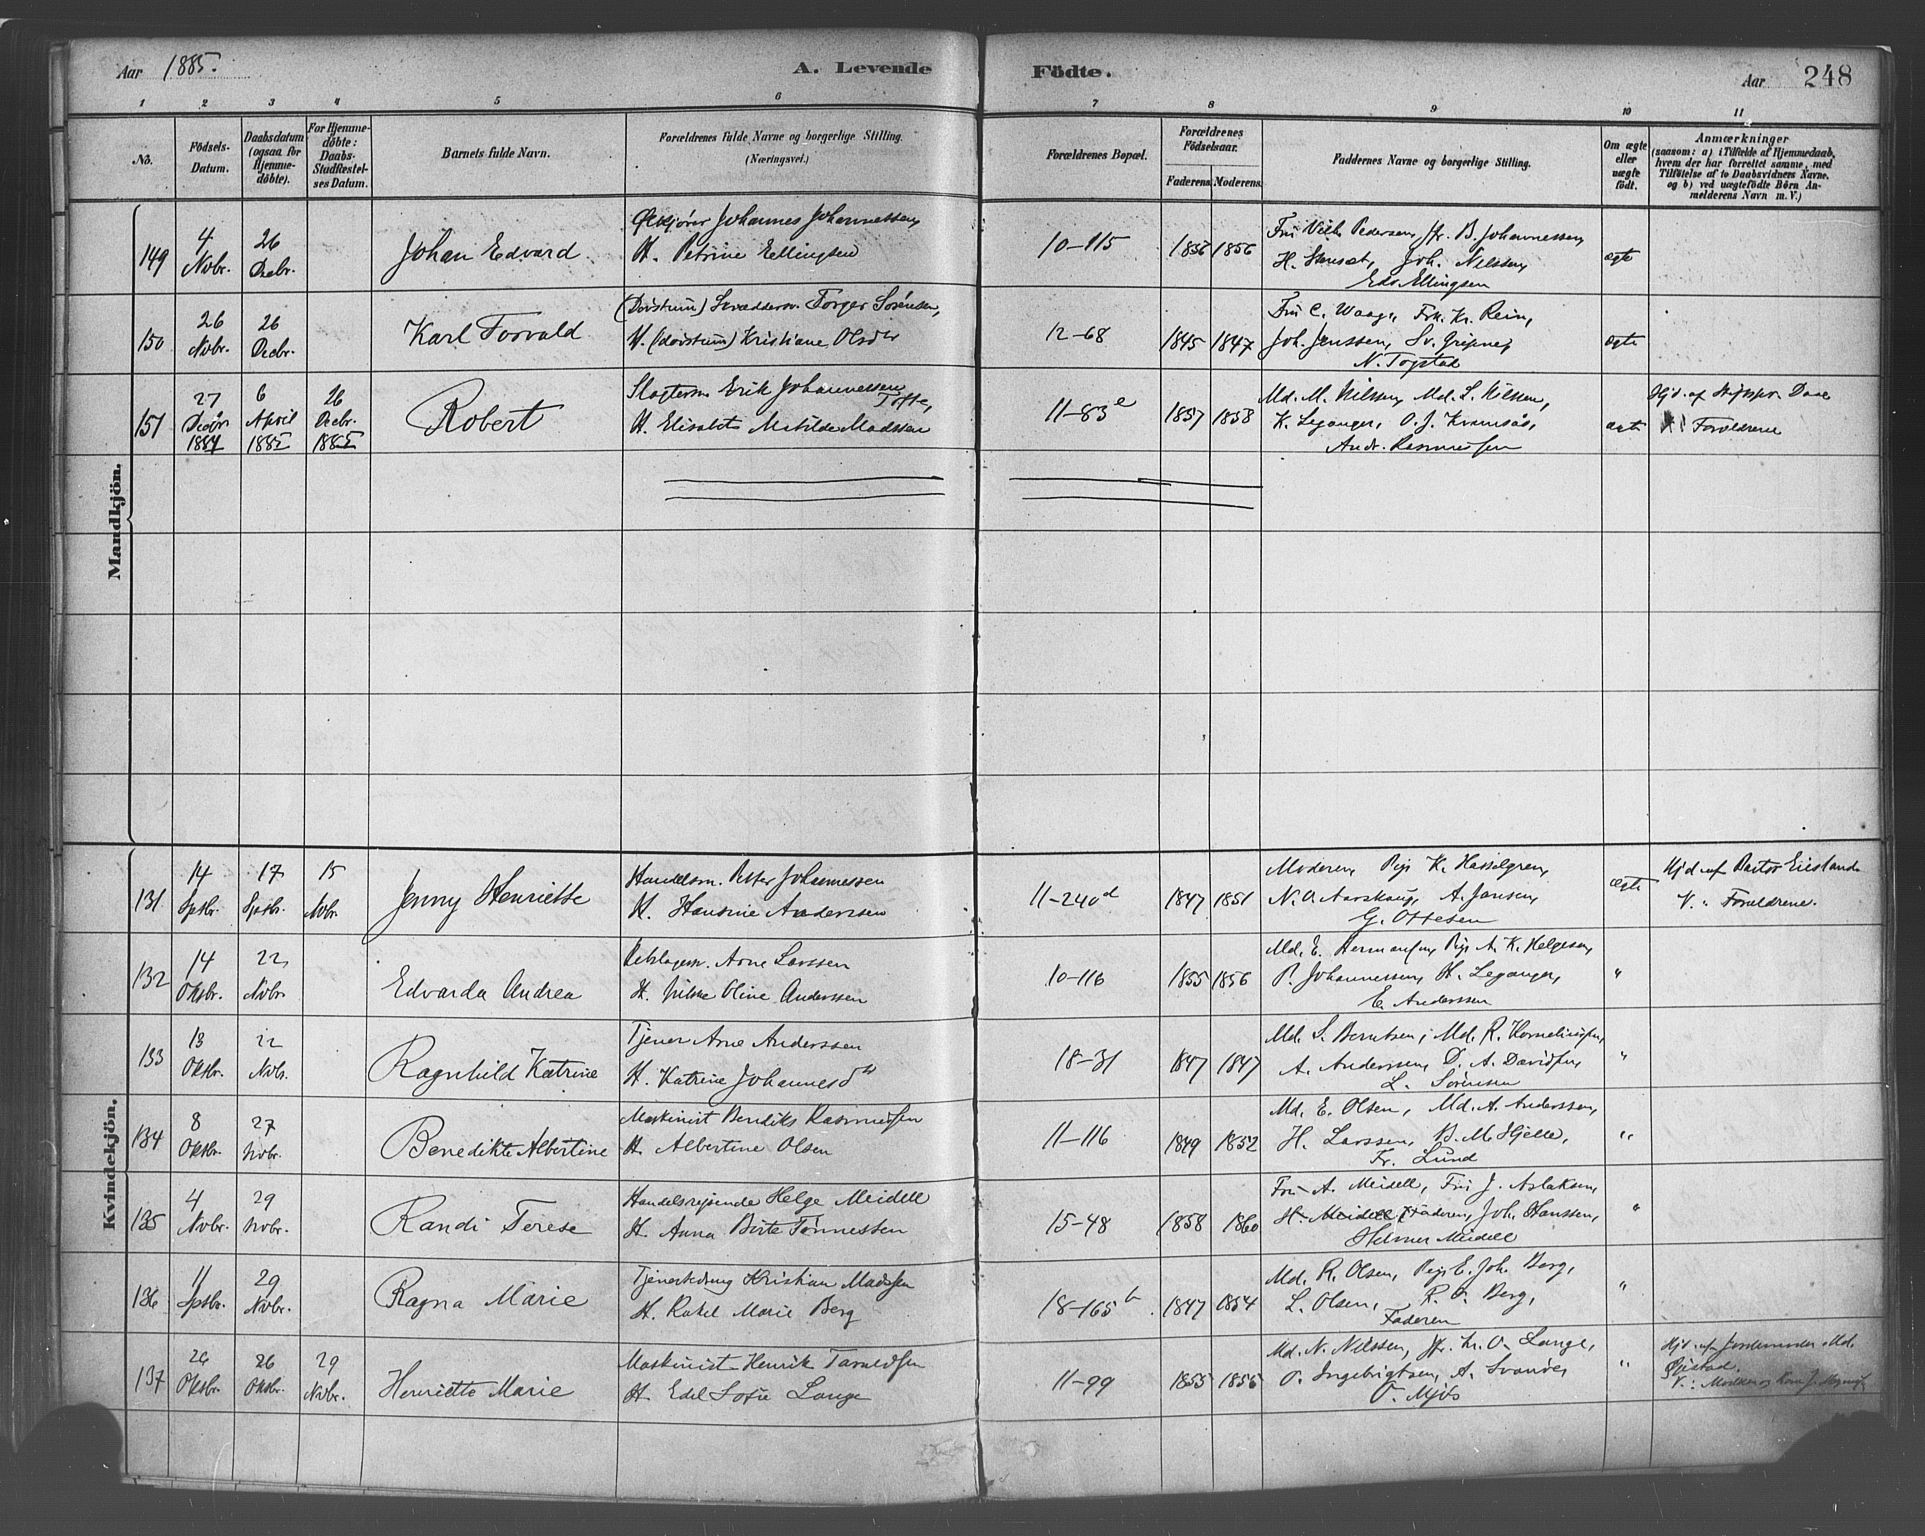 Aar 1885.
A. Levende
Födte.
Aar
248
1 2 3 4 5 6 7 8 9 10 11
No.
Födsels-
Datum.
Daabsdatum
(ogsaa for
Hjemme-
döbte).
For Hjemme-
döbte:
Daabs-
Stadfæstel-
ses Datum.
Barnets fulde Navn.
Forældrenes fulde Navne og borgerlige Stilling.
(Næringsvei.)
Forældrenes Bopæl.
Forældrenes
Födselsaar.
Faderens. Moderens.
Faddernes Navne og borgerlige Stilling.
Om ægte
eller
uægte
födt.
Anmærkninger
(saasom: a) i Tilfælde af Hjemmedaab,
hvem der har forrettet samme, med
Tilföielse af to Daabsvidners Navne,
og b) ved uægtefödte Börn An-
melderens Navn m. V.)
Mandkjön.
149
4
Nvbr.
26
Decbr.
Johan Edvard
Johannes Johannessen,
H. Petrine Ellingsen
10-115
1856 1856
Fru Vilh. Pedersen, Jfr. B. Johannessen,
H. Stensæt, Joh. Nilssen,
Edv. Ellingsen
ægte
150
26
Nvbr.
26
Decbr.
Karl Torvald
(Dövstum) Skrædderm. Torger Sörensen,
H. (dövstum) Kristiane Olsdtr
12-68
1845 1847
Fru C. Waage, Frk. Kr. Rein,
Joh. Jenssen, Sv. Gripne,
N. Togstad
ægte
151
27
Decbr.
1884
6
April
1885
26
Decbr.
1885
Robert
Slagterm. Erik Johannessen
Tofte,
H. Elisabeth Matilde Madssen
11-83 e
1857 1858
Md. M. Nilssen, Md. S. Nilssen,
K. Leganger, O. J. Kvamsås,
Andr. Rasmussen
ægte
Hjd. af Stiftspr. Daae
Forældrene
Kvindekjön.
131
14
Sptbr.
17
Sptbr.
15
Nvbr.
Jenny Henriette
Handelsm. Petter Johannessen
H. Hansine Anderssen
11-240 d
1847 1851
Moderen, Pige K. Hasselgren,
N. O. Aarskaug, A. Jansen,
G. Ottesen
ægte
Hjd. af Pastor
V. : Forældrene.
132
14
Oktbr.
22
Nvbr.
Edvarda Andrea
Arne Larssen
H. Oline Anderssen
10-116
1855 1856
Md. E. Hermansen, Pige A. K. Helgesen,
P. Johannessen, H. Leganger,
E. Anderssen
"
133
13
Oktbr.
22
Nvbr.
Ragnhild Katrine
Tjener Arne Anderssen
H. Katrine Johannesdtr
18-31
1847 1847
Md. S. Berntsen, Md. R. Korneliussen,
A. Anderssen, D. A. Davidsen,
L. Sörensen
"
134
8
Oktbr.
27
Nvbr.
Benedikte Albertine
Maskinist Bendiks Rasmussen
H. Albertine Olsen
11-116
1849 1852
Md. E. Olsen, Md. A. Anderssen,
H. Larssen, B. M. Hjelle,
Fr. Lund
"
135
4
Nvbr.
29
Nvbr.
Randi Terese
Handelsrejsende Helge Meidell
H. Anna Birte Tönnessen
15-48
1858 1860
Fru A. Meidell, Fru J. Aslaksen,
H. Meidell (Faderen, Joh. Hanssen,
Helmer Meidell
"
136
11
Sptbr.
29
Nvbr.
Ragna Marie
Kristian Madssen
H. Rakel Marie Berg
18-165 b
1847 1854
Md. R. Olsen, Pige E. Joh. Berg,
L. Olsen, R. O. Berg,
Faderen
"
137
26
Oktbr.
26
Oktbr.
29
Nvbr.
Henriette Marie
Maskinist Henrik Taraldsen
H. Edel Sofie Lange
11-99
1855 1856
Md. N. Nilssen, Jfr. O. Lange,
O. Ingebrigtsen, A. Svanöe,
O. Mjös
"
Hjd. af Jordemoder Md.